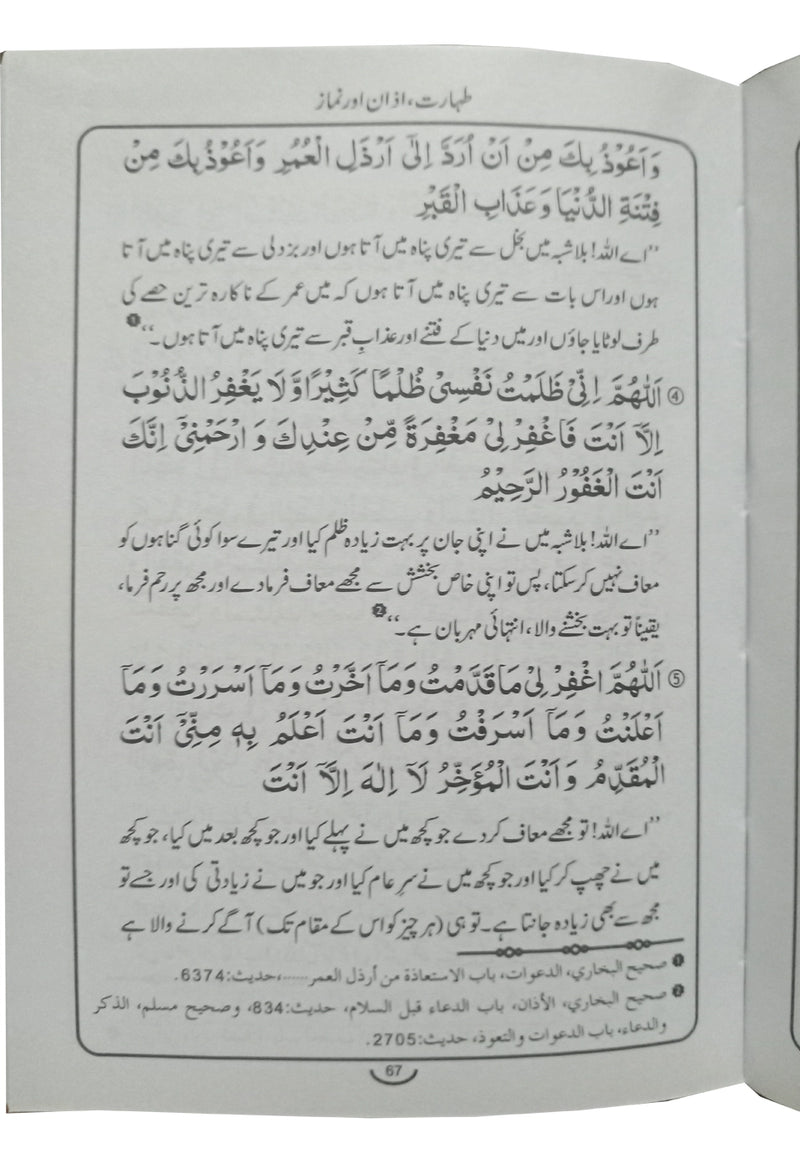 طہارت، اذان اور نماز
وَاَعُوْذُ بِكَ مِنْ اَنْ اُرَدَّ اِلٰٓى اَرْذَلِ الْعُمُرِ وَاَعُوْذُ بِكَ مِنْ
فِتْنَةِ الدُّنْيَا وَعَذَابِ الْقَبْرِ
’’اے اللہ! بلاشبہ میں بخل سے تیری پناہ میں آتا ہوں اور بزدلی سے تیری پناہ میں آتا
ہوں اور اس بات سے تیری پناہ میں آتا ہوں کہ میں عمر کے ناکارہ ترین حصے کی
طرف لوٹایا جاؤں اور میں دنیا کے فتنے اور عذابِ قبر سے تیری پناہ میں آتا ہوں۔‘‘❶
④ اَللّٰهُمَّ اِنِّيْ ظَلَمْتُ نَفْسِيْ ظُلْمًا كَثِيْرًا وَّلَا يَغْفِرُ الذُّنُوْبَ
اِلَّآ اَنْتَ فَاغْفِرْ لِيْ مَغْفِرَةً مِّنْ عِنْدِكَ وَارْحَمْنِيْٓ اِنَّكَ
اَنْتَ الْغَفُوْرُ الرَّحِيْمُ
’’اے اللہ! بلاشبہ میں نے اپنی جان پر بہت زیادہ ظلم کیا اور تیرے سوا کوئی گناہوں کو
معاف نہیں کر سکتا، پس تو اپنی خاص بخشش سے مجھے معاف فرما دے اور مجھ پر رحم فرما،
یقیناً تو بہت بخشنے والا، انتہائی مہربان ہے۔‘‘❷
⑤ اَللّٰهُمَّ اغْفِرْ لِيْ مَا قَدَّمْتُ وَمَآ اَخَّرْتُ وَمَآ اَسْرَرْتُ وَمَآ
اَعْلَنْتُ وَمَآ اَسْرَفْتُ وَمَآ اَنْتَ اَعْلَمُ بِهٖ مِنِّيْٓ اَنْتَ
الْمُقَدِّمُ وَاَنْتَ الْمُؤَخِّرُ لَآ اِلٰهَ اِلَّآ اَنْتَ
’’اے اللہ! تو مجھے معاف کر دے جو کچھ میں نے پہلے کیا اور جو کچھ بعد میں کیا، جو کچھ
میں نے چھپ کر کیا اور جو کچھ میں نے سرِ عام کیا اور جو میں نے زیادتی کی اور جسے تو
مجھ سے بھی زیادہ جانتا ہے۔ تو ہی (ہر چیز کو اس کے مقام تک) آگے کرنے والا ہے
❶ صحيح البخاري، الدعوات، باب الاستعاذة من أرذل العمر......، حديث:6374.
❷ صحيح البخاري، الأذان، باب الدعاء قبل السلام، حديث:834، وصحيح مسلم، الذكر
والدعاء، باب الدعوات والتعوذ، حديث:2705.
67